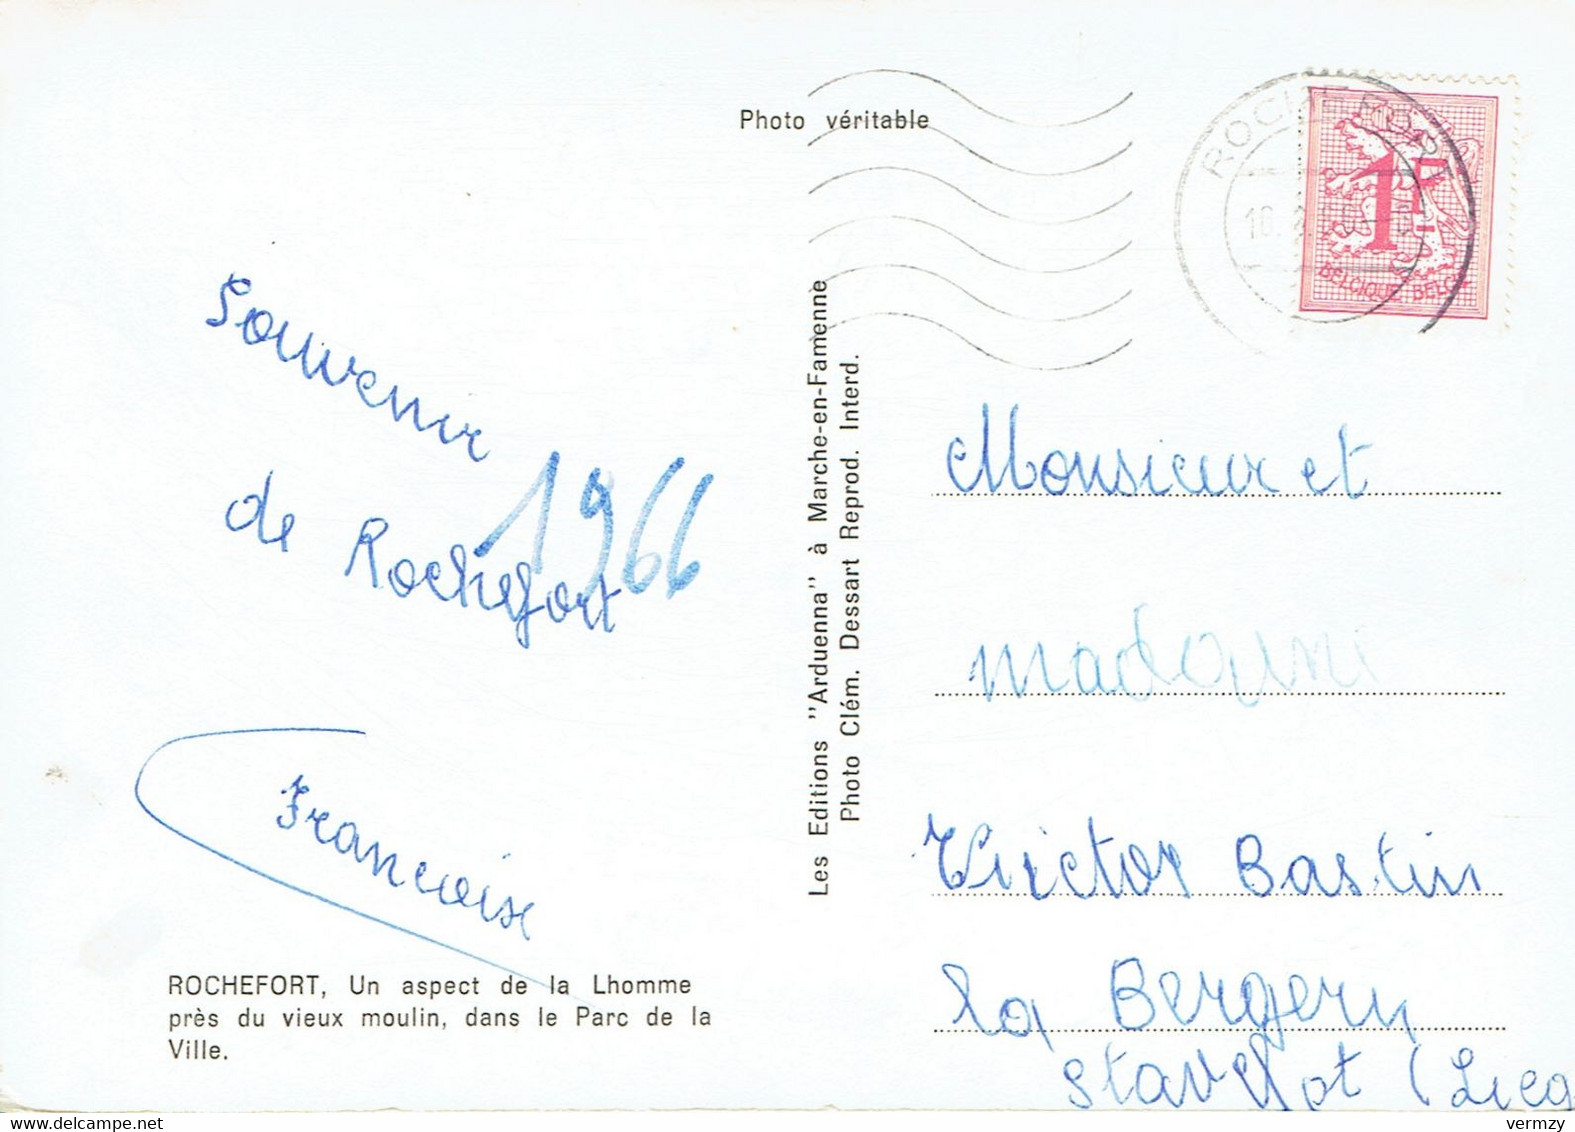 Photo véritable
ROCHEFORT
1F
BELGIQUE BELGIE
Souvenir
de Rochefort
1966
Francoise
ROCHEFORT, Un aspect de la Lhomme
près du vieux moulin, dans le Parc de la
Ville.
Les Editions "Arduenna" à Marche-en-Famenne
Photo Clém. Dessart Reprod. Interd.
Monsieur et
madame
Victor Bastin
la
Stavelot (Lieg
www.delcampe.net
vermzy